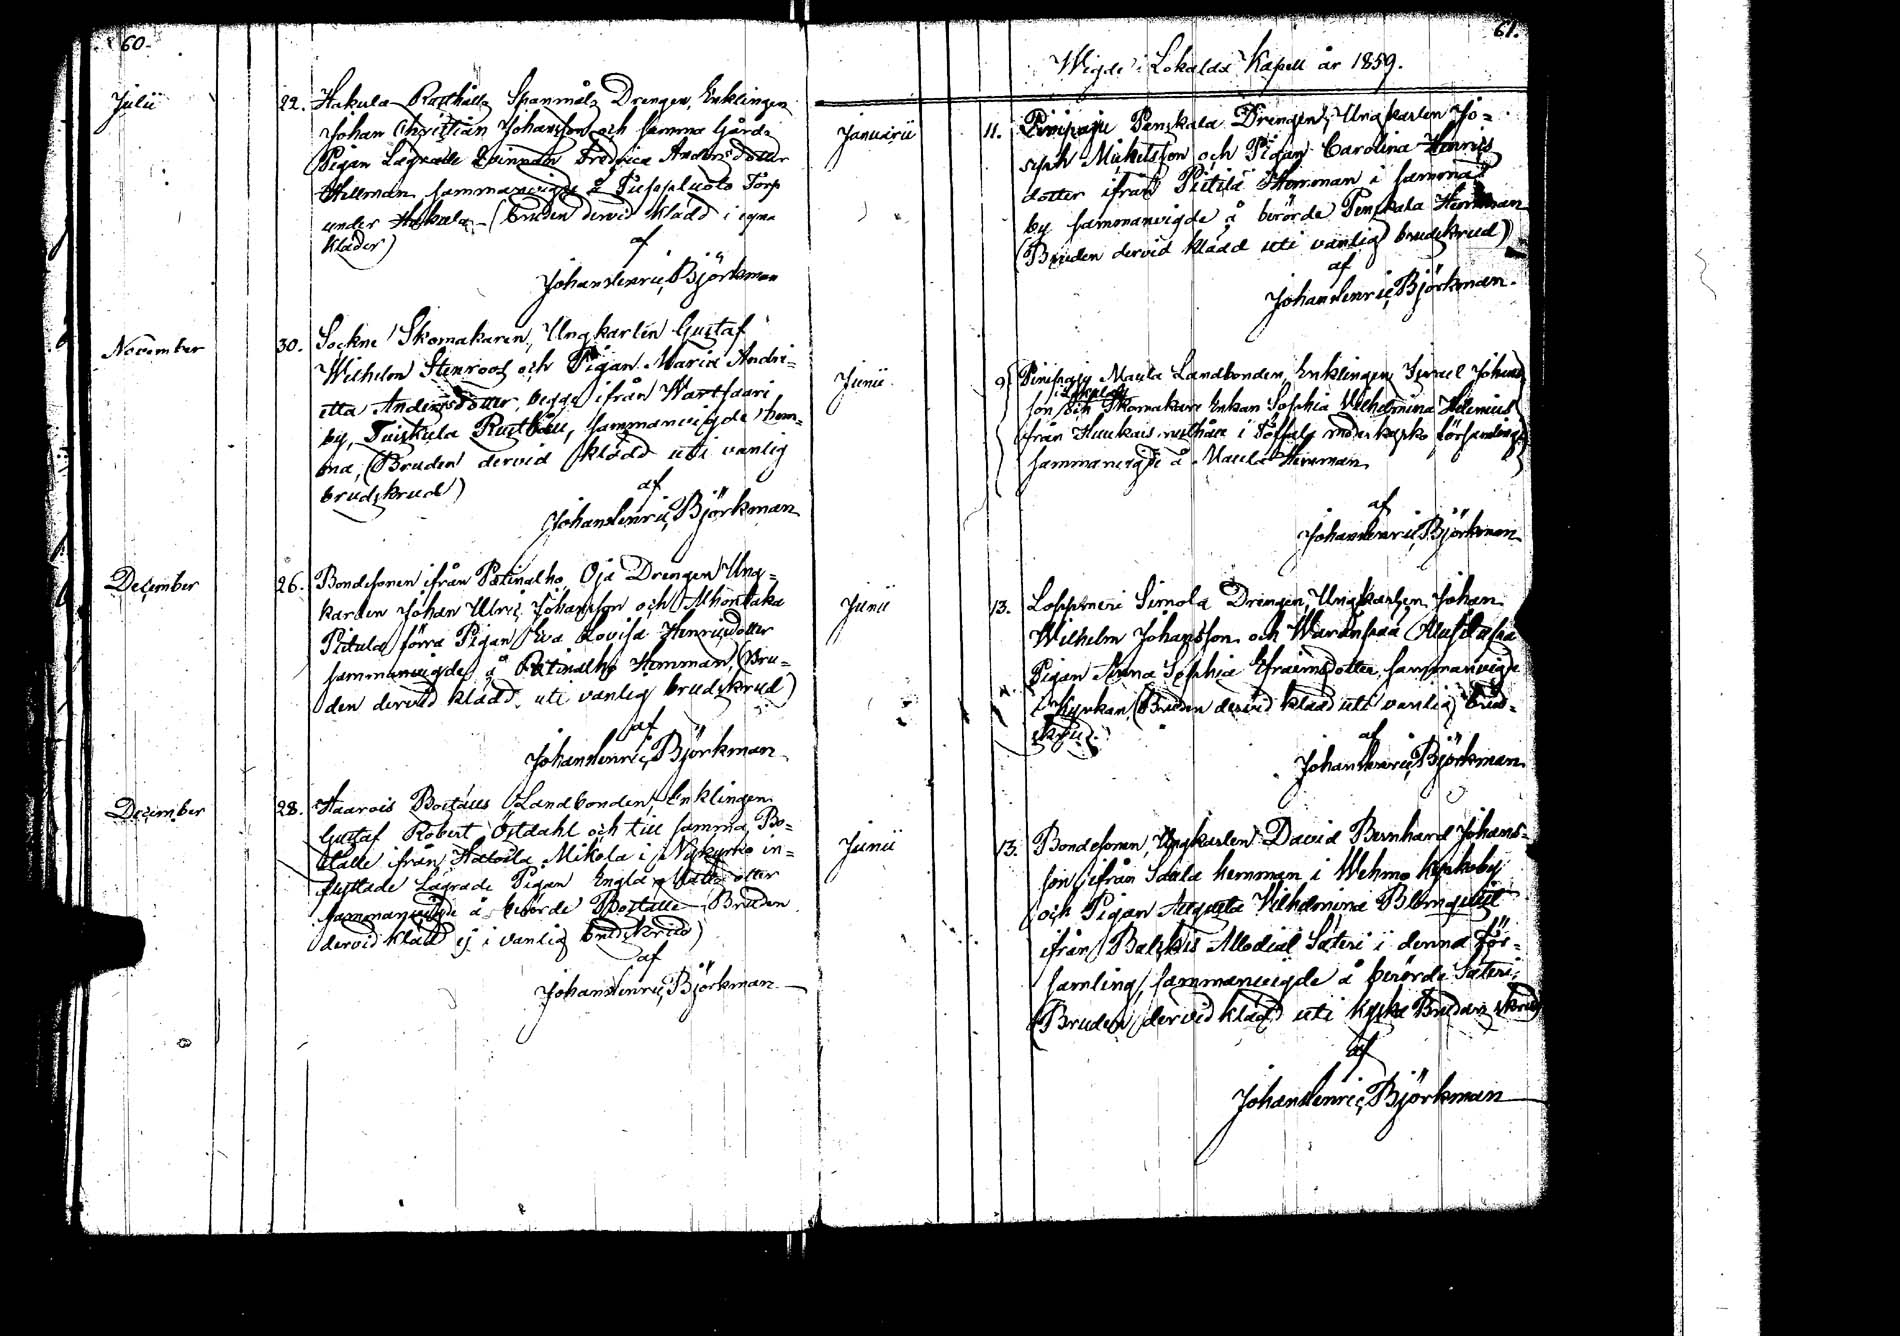 60.
Julii 22. Hakula Rusthålls Spanmåls Drengen, Enklingen
Johan Christian Johansson och samma Gårds
Pigan Lägrade Qvinnan Fredrica Andersdotter
Hellman sammanvigde å Torp
under Hakula – (bruden dervid klädd i egna
kläder)
af
Johan Henric Björkman
November 30. Sockne Skomakaren, Ungkarlen Gustaf
Wilhelm Stenroos och Pigan Maria Andri-
etta Andersdotter, begge ifrån Wartsaari
by, Tuiskula Rusthåll, sammanvigde hem-
ma, (Bruden dervid klädd uti vanlig
brudskrud)
af
Johan Henric Björkman
December 26. Bondesonen ifrån Patinalho, Oja Drengen Ung-
karlen Johan Ulric Johansson och
Pitula förra Pigan Eva Lovisa Henricsdotter
sammanvigde å Patinalho Hemman, (Bru-
den dervid klädd uti vanlig brudskrud)
af
Johan Henric Björkman
December 28. Haarois Boställs Landbonden, Enklingen
Gustaf Robert Östdahl och till samma Bo-
ställe ifrån Mikola i Nykyrko in-
flyttade Lägrade Pigan Engla
sammanvigde å berörde Boställe Bruden
dervid klädd ej i vanlig brudskrud)
af
Johan Henric Björkman
61.
Wigde i Lokalax Kapell år 1859.
Januarii 11. Pinipaju Penskala Drengen, Ungkarlen Jo-
seph Michelsson och Pigan Carolina Henrics
dotter ifrån Pietilä Hemman i samma
by sammanvigde å berörde Penskala Hemman
(Bruden dervid klädd uti vanlig brudskrud)
af
Johan Henric Björkman.
Junii 9. Pinipaju Maula Landbonden, Enklingen Israel Johans
son och Skomakare Enkan Sophia Vilhelmina Helenius
från rusthåll i Töfsala moderkyrko församling
sammanvigde å Maula Hemman
af
Johan Henric Björkman
Junii 13. Lopperi Simola Drengen, Ungkarlen Johan
Wilhelm Johansson och Waranpää
Pigan Anna Sophia Efraimsdotter sammanvigde
i Kyrkan, (Bruden dervid klädd uti vanlig brud-
skrud).
af
Johan Henric Björkman
Junii 13. Bondesonen, Ungkarlen David Bernhard Johans-
son ifrån Saula hemman i Wehmo kyrkoby
och Pigan Augusta Vilhelmina Blomqvist
ifrån Balkis Allodial Säteri i denna För-
samling, sammanvigde å berörde Säteri;
(Bruden dervid klädd uti kyska Brudars skrud)
af
Johan Henric Björkman